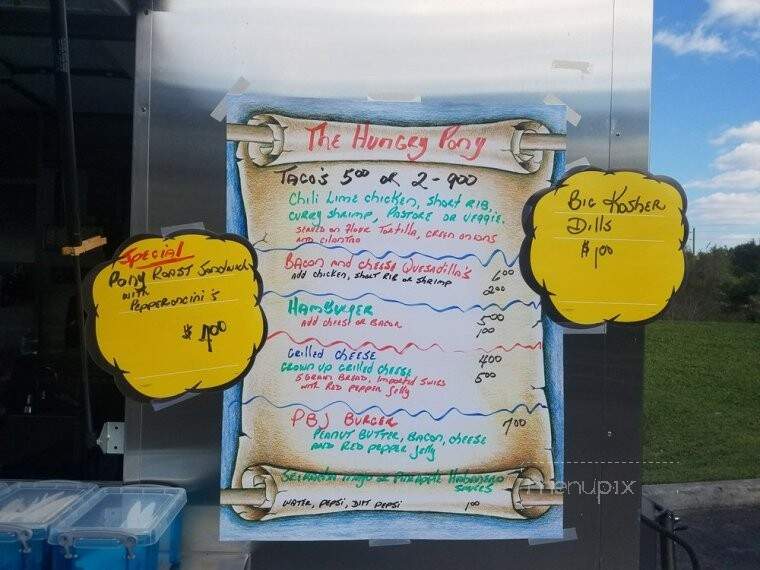 The Hungry Pony
Taco's 5⁰⁰ or 2-9⁰⁰
Chili Lime chicken, short rib,
curry shrimp, Pastore or veggie.
served on flour Tortilla, green onions
and cilantro
Bacon and cheese Quesadilla's 6⁰⁰
add chicken, short rib or shrimp 2⁰⁰
Hamburger 5⁰⁰
add cheese or Bacon 1⁰⁰
Grilled cheese 4⁰⁰
Grown up Grilled cheese 5⁰⁰
5 Grain Bread, Imported Swiss
with Red pepper Jelly
PBJ Burger 7⁰⁰
Peanut Butter, Bacon, cheese
and Red pepper Jelly
mayo or Pineapple Habanero
sauces
water, pepsi, Diet pepsi 1⁰⁰
Special
Pony Roast Sandwich
with
Pepperoncini's
$ 7⁰⁰
Big Kosher
Dills
$1⁰⁰
menupix